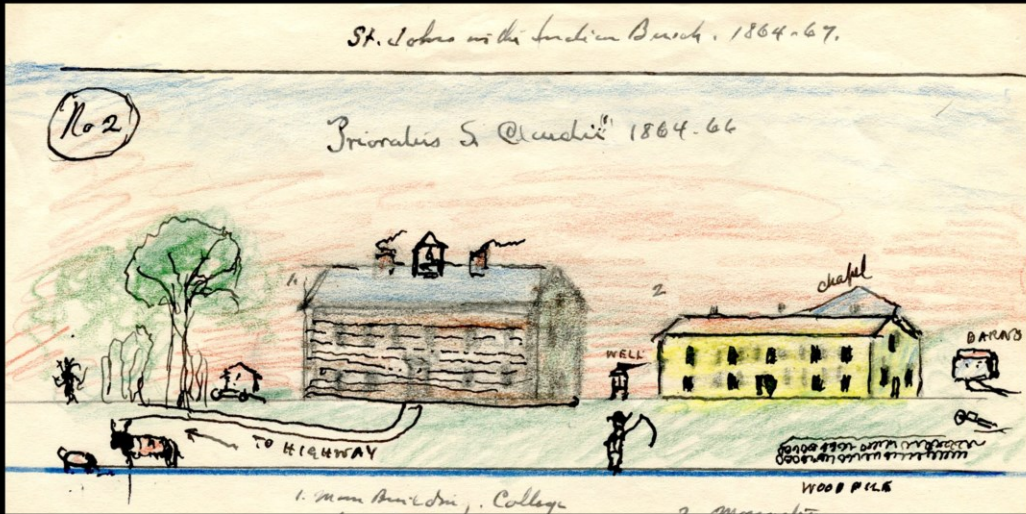 St. Johns in the Indian Bush. 1864-67.
No 2
"Prioratus S. Claudii" 1864-66
1.
2
chapel
WELL
BARNS
TO HIGHWAY
WOOD PILE
1. Main Building, College
2. Monastery